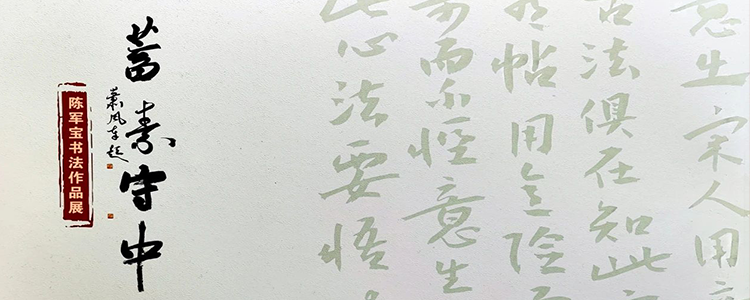 意生宋人用
法俱在知此
帖用意险
而不怪意生
心法要悟
蓄素守中
陈军宝书法作品展